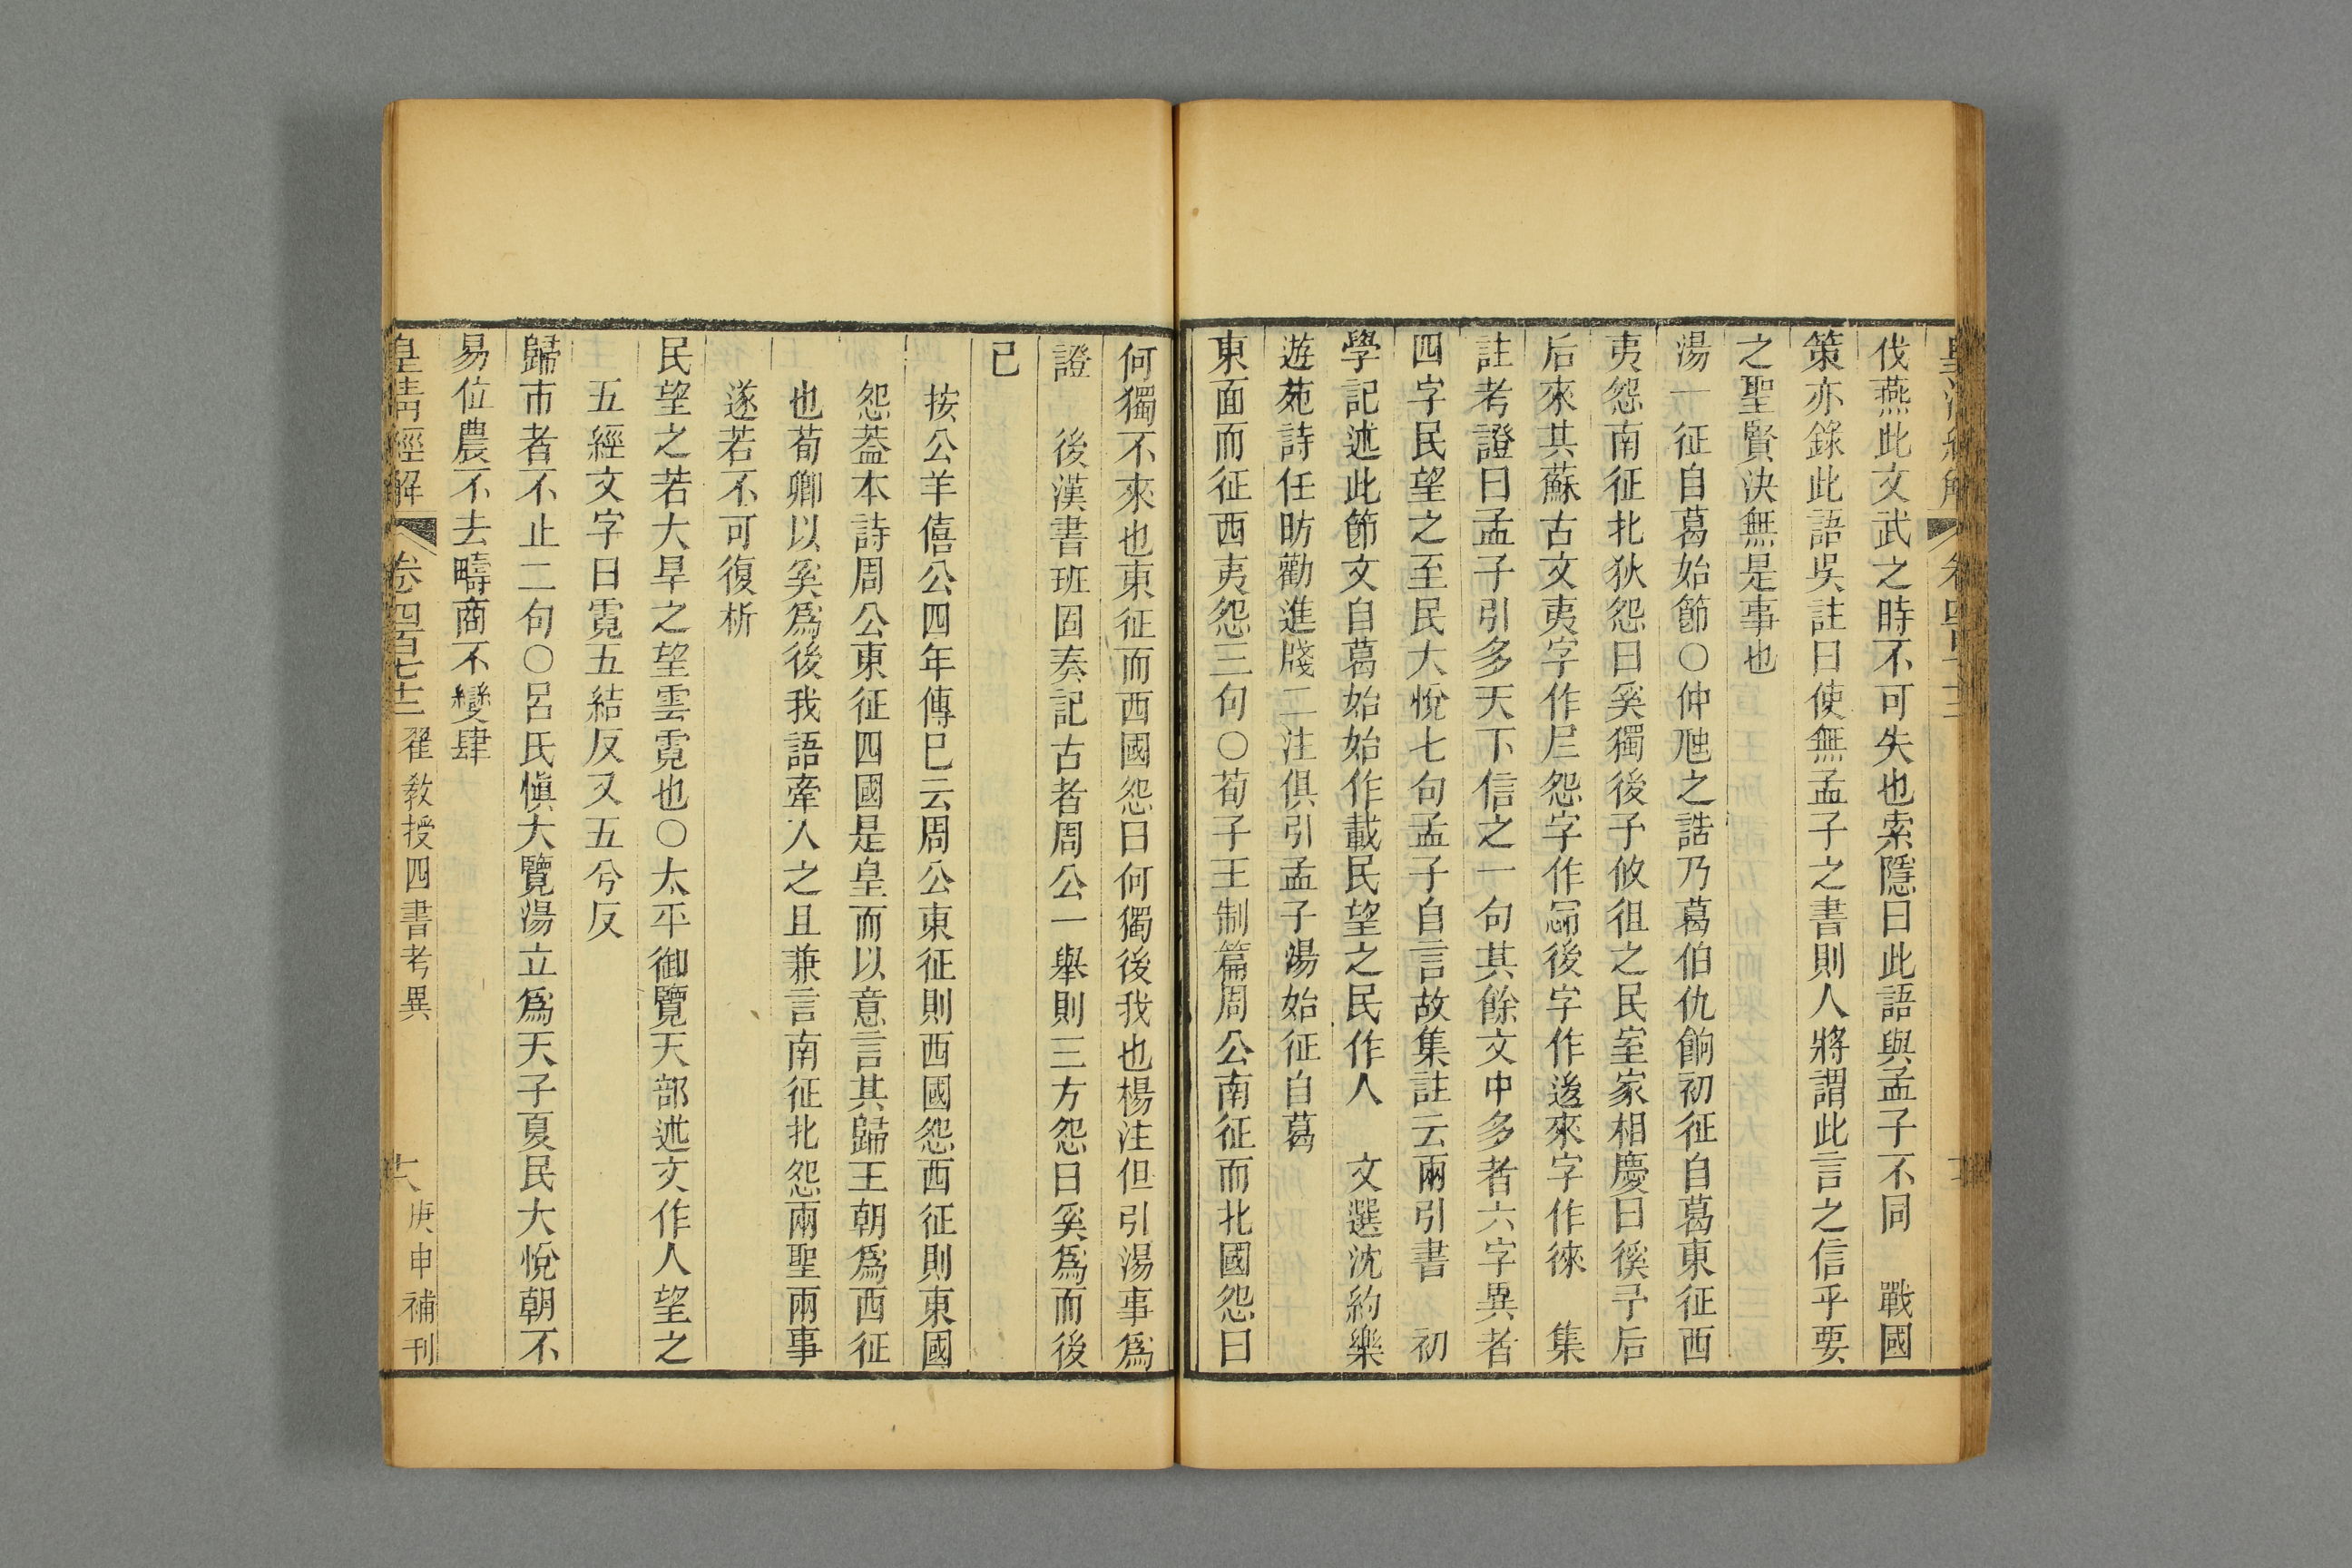 伐燕此文武之時不可失也索隱曰此語與孟子不同　戰國
策亦錄此語吳註曰使無孟子之書則人將謂此言之信乎要
之聖賢決無是事也
湯一征自葛始節○仲虺之誥乃葛伯仇餉初征自葛東征西
夷怨南征北狄怨曰奚獨後予攸徂之民室家相慶曰徯予后
后來其蘇古文夷字作𡰥怨字作㤪後字作逡來字作徠　集
註考證曰孟子引多天下信之一句其餘文中多者六字異者
四字民望之至民大悅七句孟子自言故集註云兩引書　初
學記述此節文自葛始始作載民望之民作人　文選沈約樂
遊苑詩任昉勸進牋二注俱引孟子湯始征自葛
東面而征西夷怨三句○荀子王制篇周公南征而北國怨曰
何獨不來也東征而西國怨曰何獨後我也楊注但引湯事爲
證　後漢書班固奏記古者周公一舉則三方怨曰奚爲而後
已
按公羊僖公四年傳巳云周公東征則西國怨西征則東國
怨葢本詩周公東征四國是皇而以意言其歸王朝爲西征
也荀卿以奚爲後我語牽入之且兼言南征北怨兩聖兩事
遂若不可復析
民望之若大旱之望雲霓也○太平御覽天部述文作人望之
五經文字曰霓五結反又五兮反
歸市者不止二句○呂氏愼大覽湯立爲天子夏民大悅朝不
易位農不去疇商不變肆
皇清經解　卷四百七十三　翟教授四書考異　十八　庚申補刊